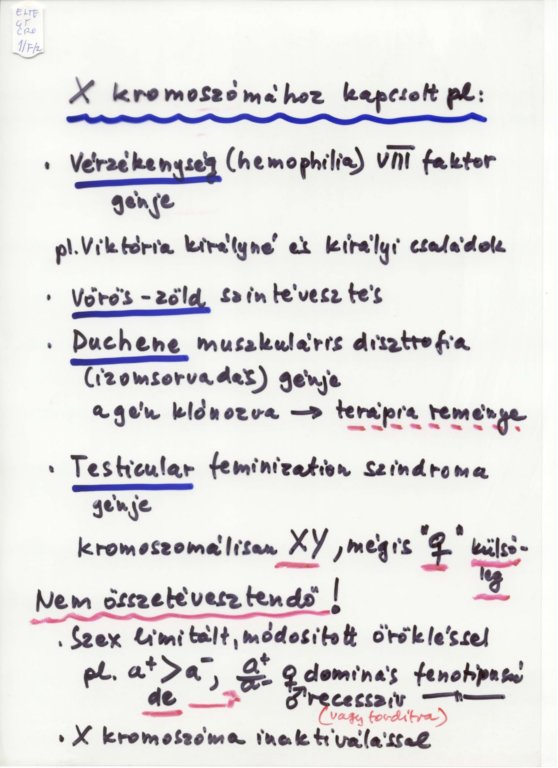 ELTE
GT
CRO
1/F/2
X kromoszómához kapcsolt pl:
• Vérzékenység (hemophilia) VIII faktor
génje
pl. Viktória királyné és királyi családok
• Vörös-zöld színtévesztés
• Duchene muszkuláris disztrofia
(izomsorvadás) génje
a gén klónozva → terápia reménye
• Testicular feminization szindroma
génje
kromoszomálisan XY, mégis "♀" külső-
leg
Nem összetévesztendő!
• Szex limitált, módosított örökléssel
pl. a+ > a-, a+/a- ♀ domináns fenotipusú
de ♂ recesszív
(vagy fordítva)
• X kromoszóma inaktiválással